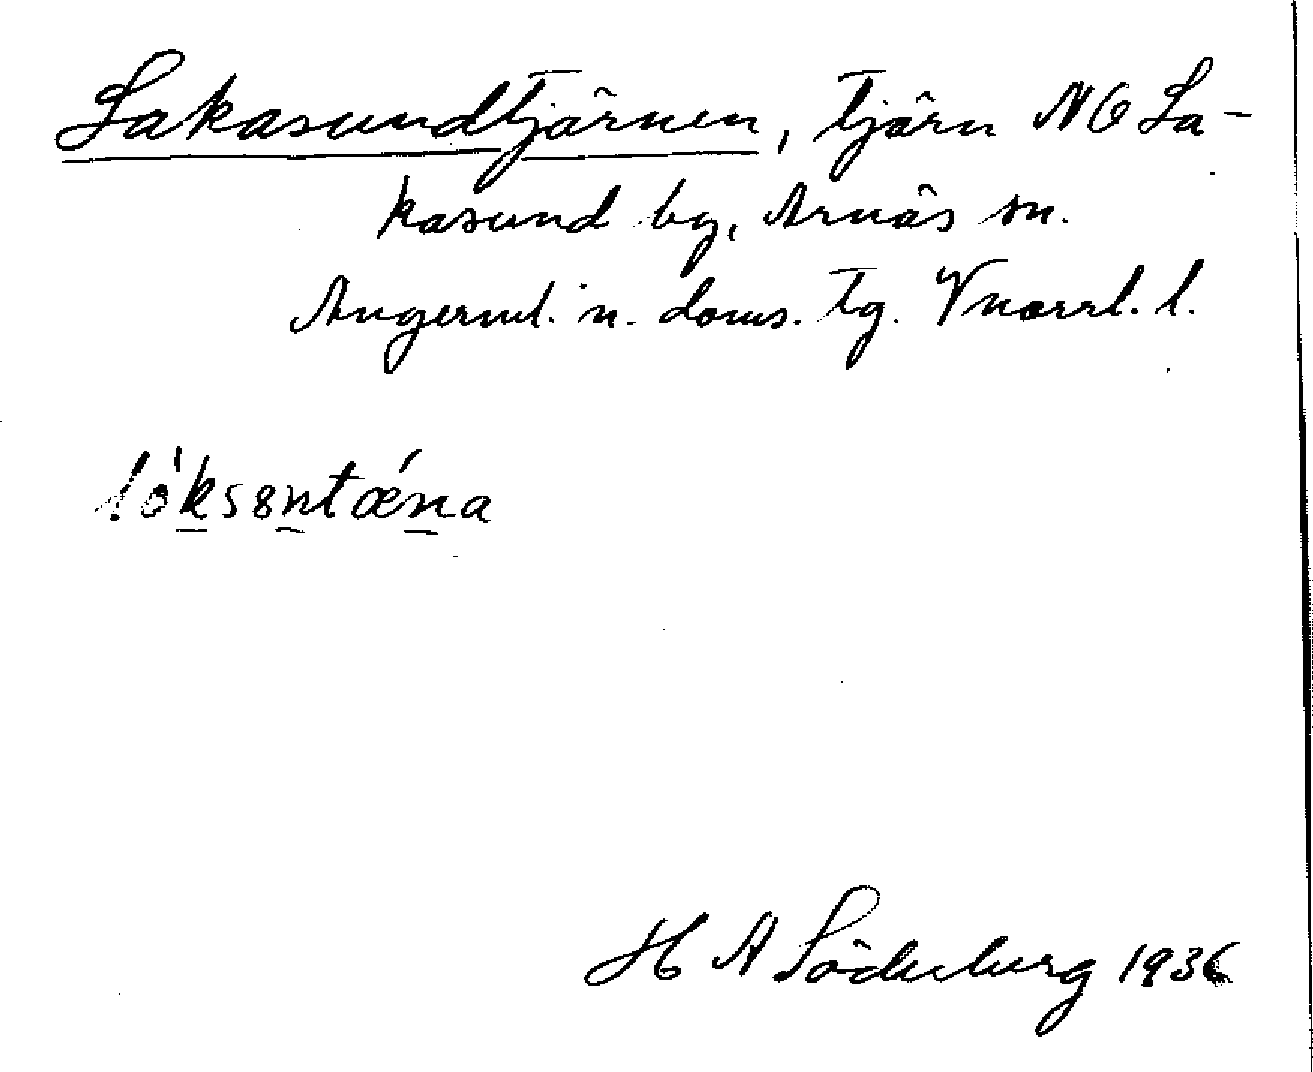 Lakasundtjärnen, tjärn NÖ La-
kasund by, Arnäs sn.
Ångerml. n. doms. tg. Vnorrl. l.
H A Söderberg 1936